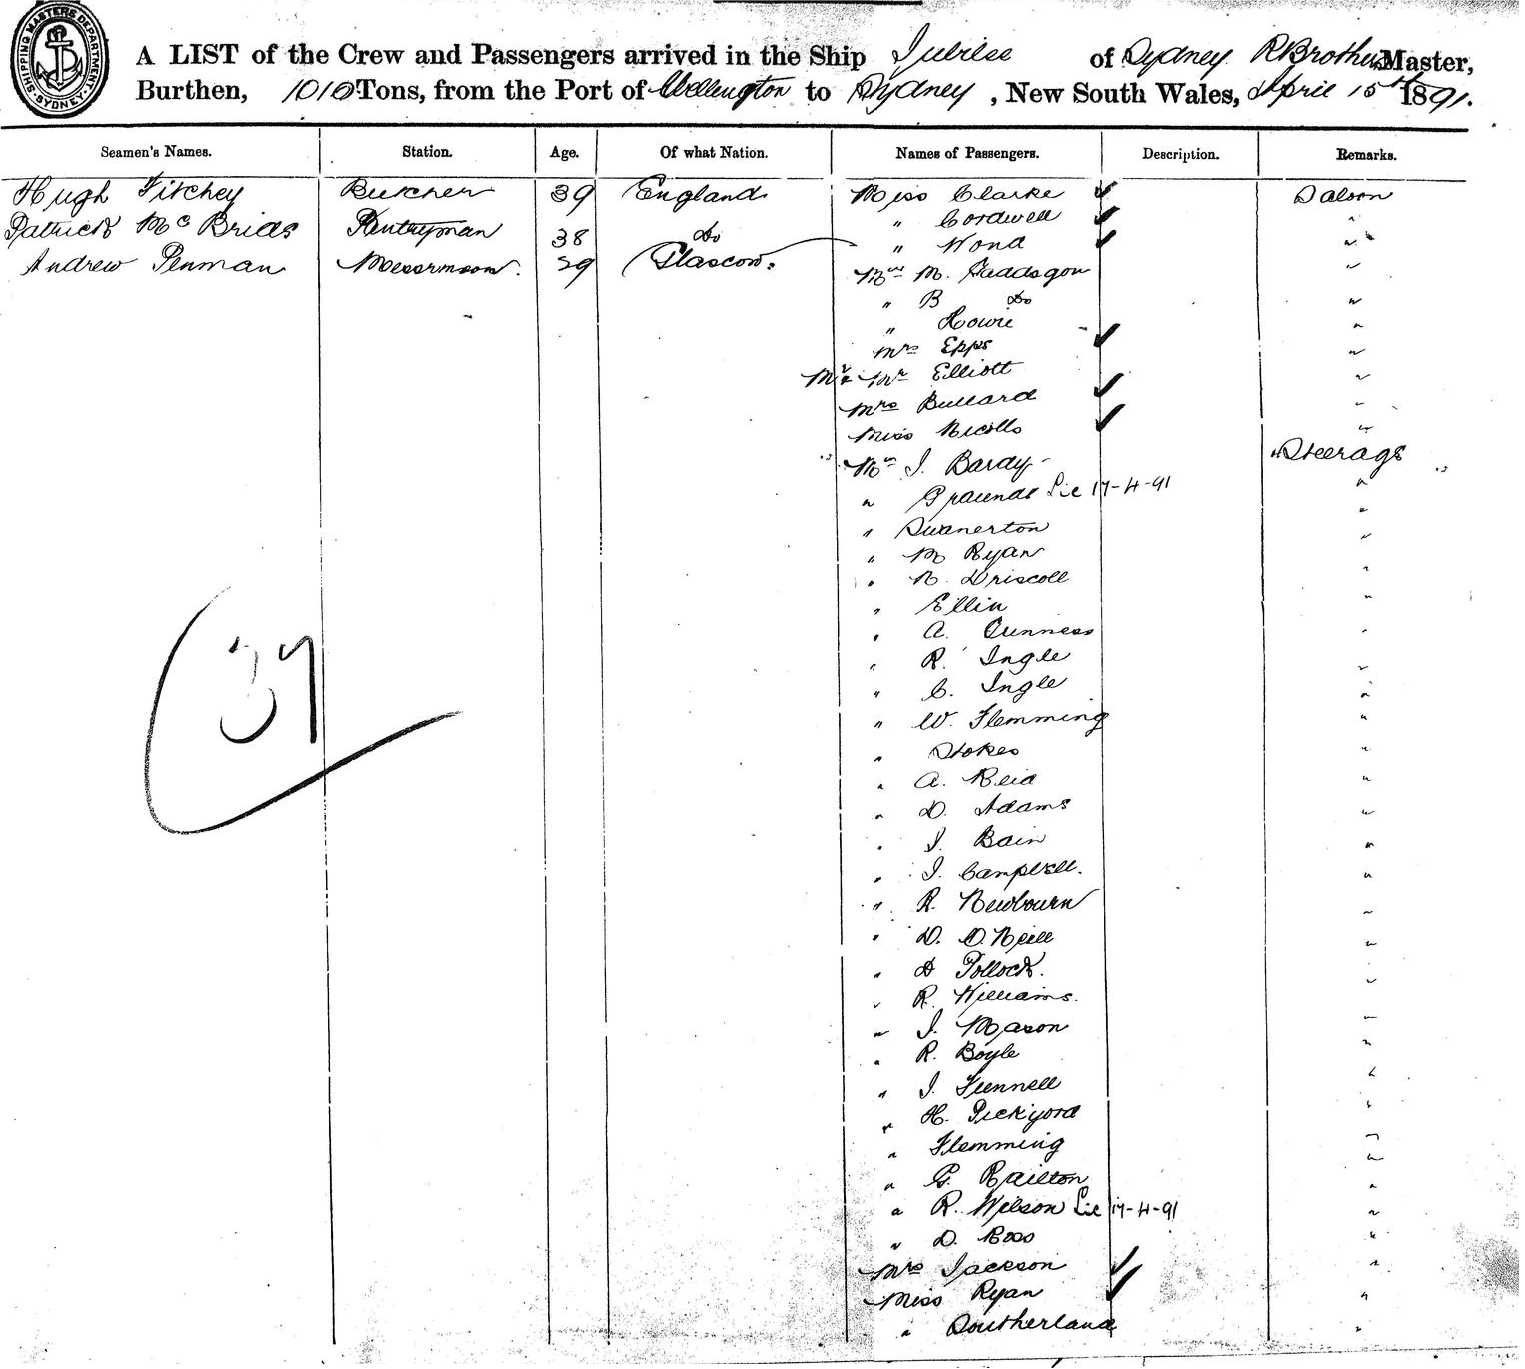 SHIPPING MASTERS DEPARTMENT. SYDNEY
A LIST of the Crew and Passengers arrived in the Ship Jubilee of Sydney R Brothers Master,
Burthen, 1010 Tons, from the Port of Wellington to Sydney, New South Wales, April 15th 1891.
Seamen's Names. Station. Age. Of what Nation. Names of Passengers. Description. Remarks.
Hugh Fitchey Butcher 39 England Miss Clarke ✓ Saloon
Patrick Mc Brids Pantryman 38 Do " Cordwell ✓ "
Andrew Penman Messrmson. 29 Glascow. " Wond ✓ "
Mr M. "
" B Do "
" Howie "
Mrs Epps ✓ "
Mr & Mr Elliott "
Mrs Bullard ✓ "
Miss Nicolls ✓ "
Mr J. Bardy " Steerage
" Lie 17-4-91 "
" Swanerton "
" M Ryan "
" N. Driscoll "
" Ellin "
" A. Gunness "
" R. Ingle "
" C. Ingle "
" W. Flemming "
" Stokes "
" A. Reid "
" D. Adams "
" J. Bain "
" J. Campbell. "
" R. Newbourn "
" D. O.Neill "
" D Pollock. "
" R. Williams. "
" J. Mason "
" R. Boyle "
" J. Funnell "
" H. Pickyord "
" Flemming "
" G. Railton "
" R. Wilson Lie 17-4-91 "
" D. Ross "
Mrs Jackson ✓ "
Miss Ryan ✓ "
" Southerland "
37